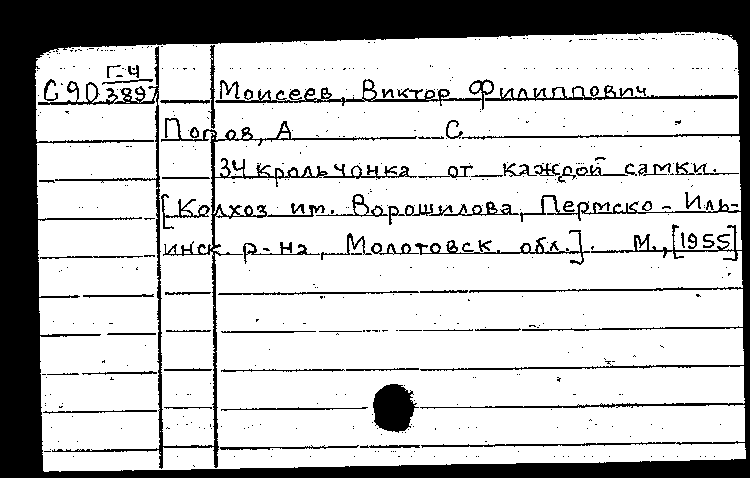 Г-4
С 90 3897 Моисеев, Виктор Филиппович
Попов, А С.
34 крольчонка от каждой самки.
[Колхоз им. Ворошилова, Пермско-Иль-
инск. р-на, Молотовск. обл.]. М., [1955]